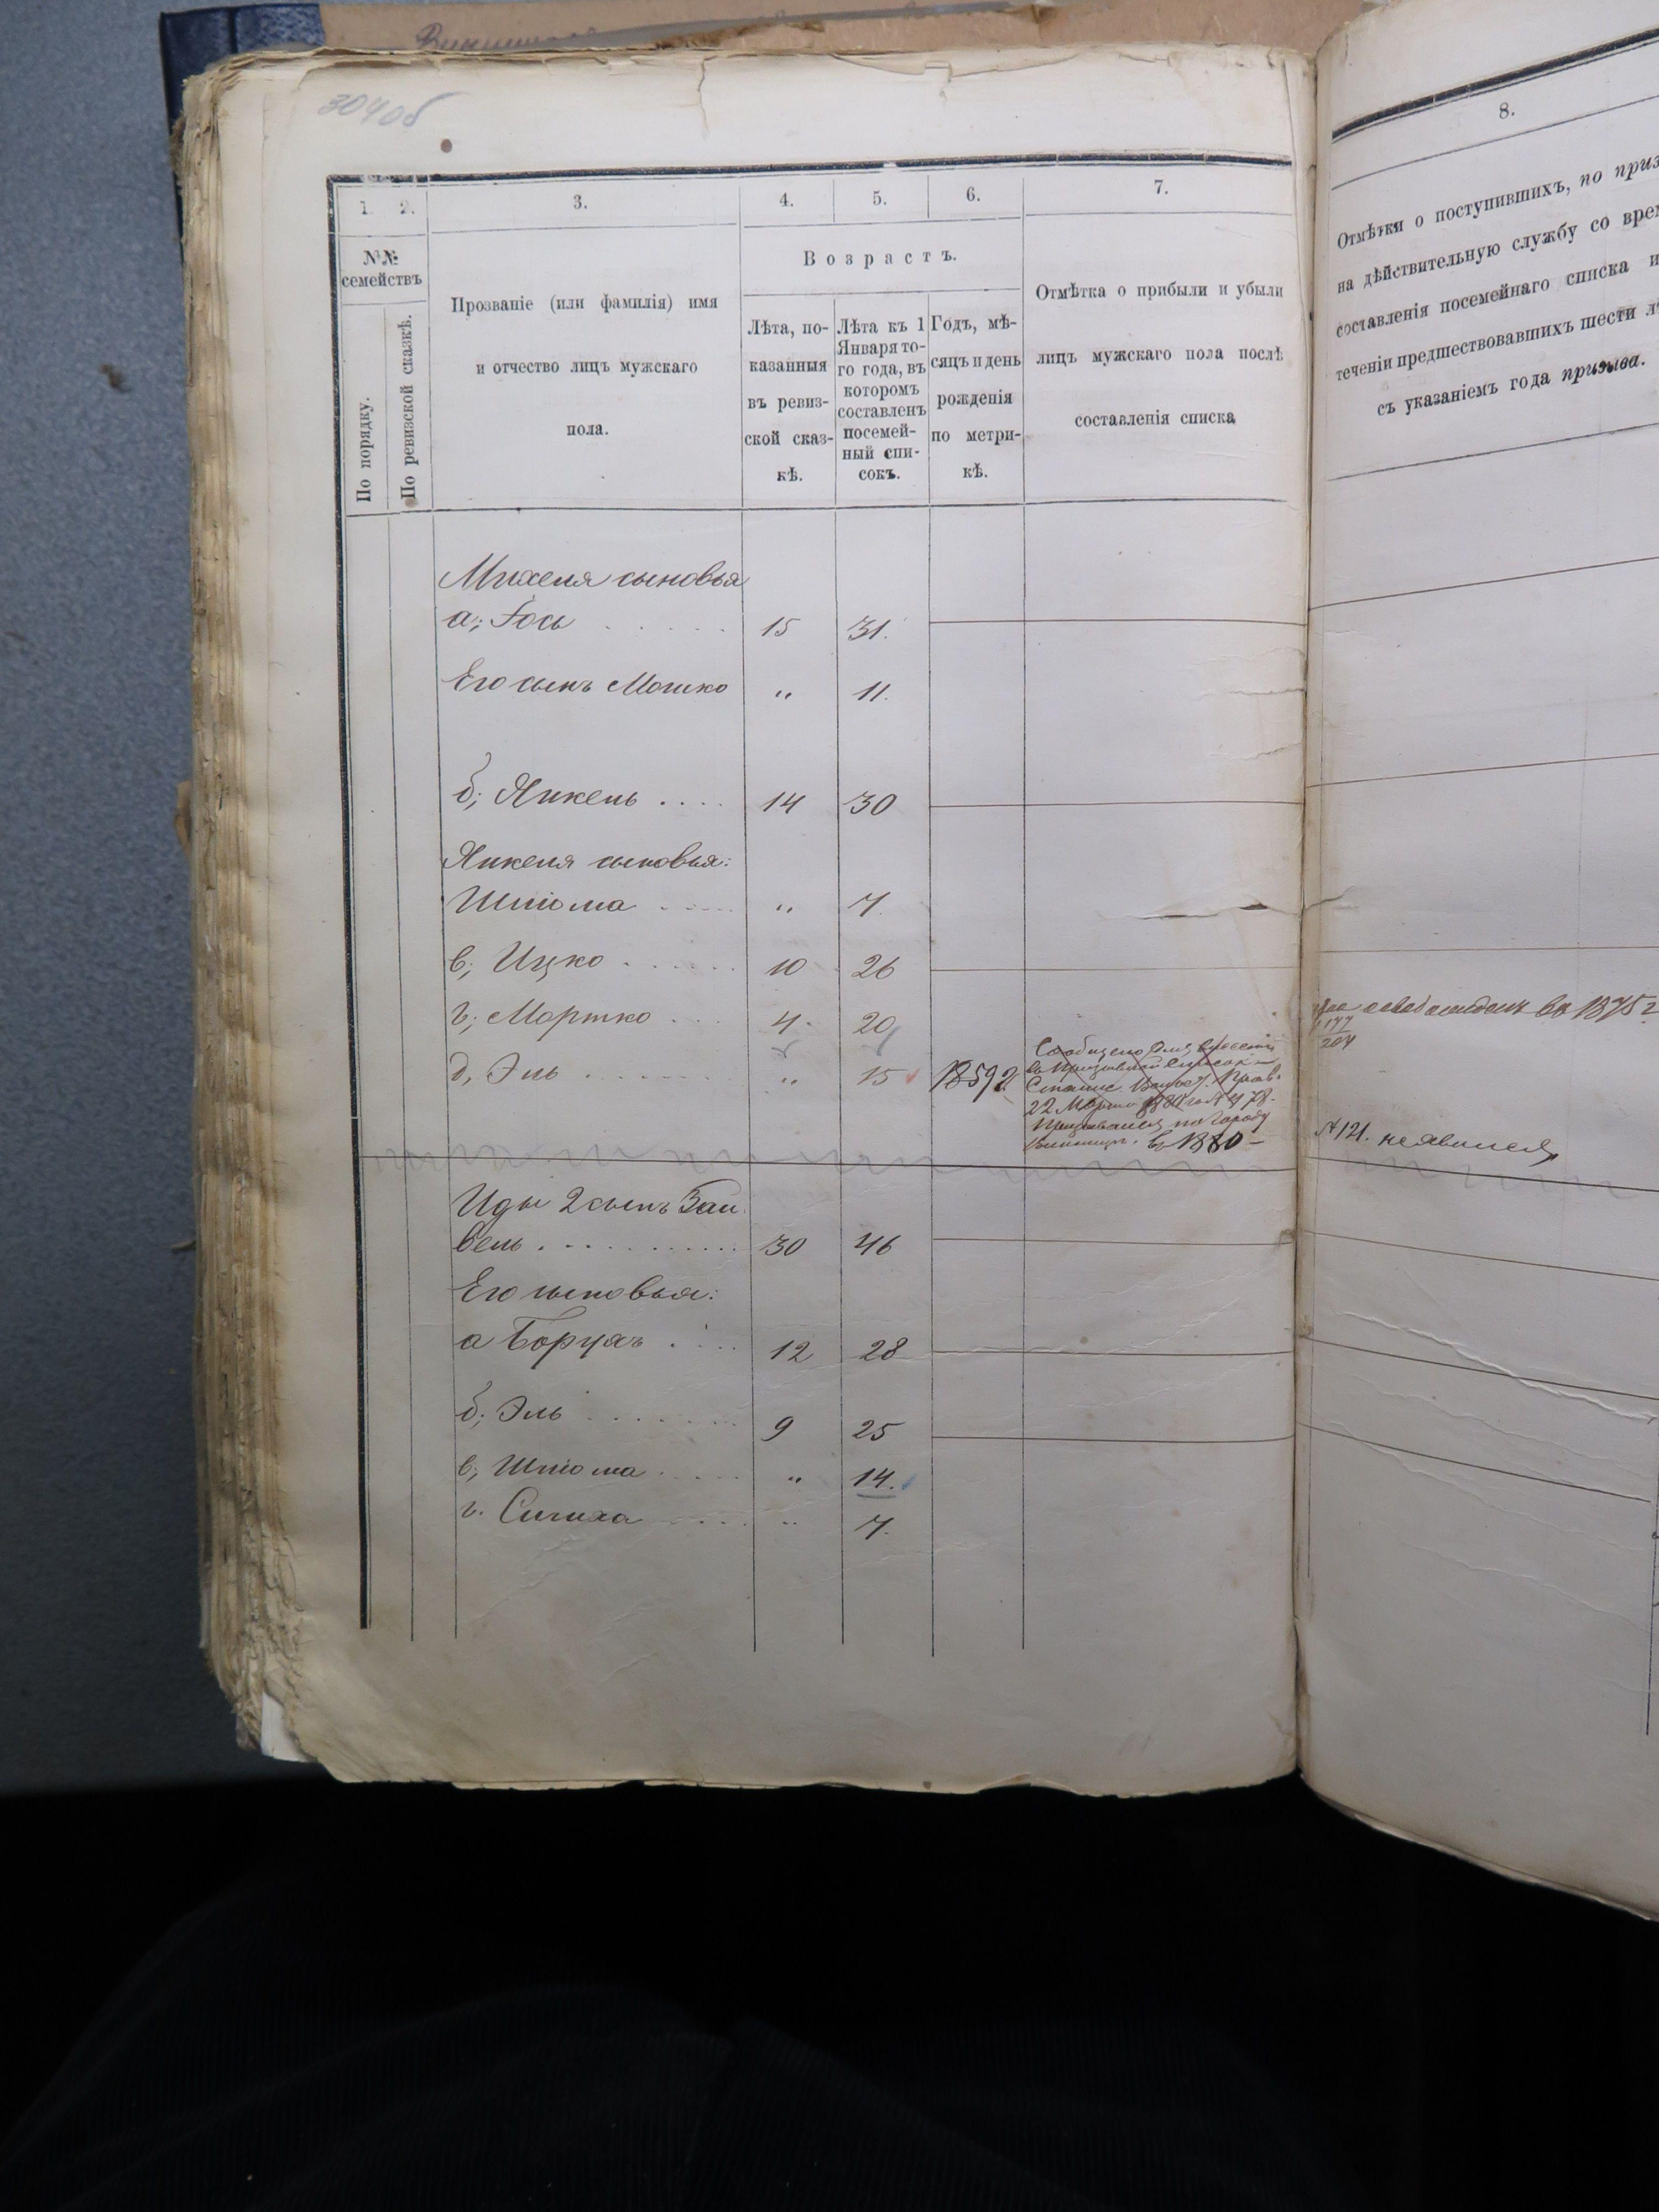 304 об
1. 2. 3. 4. 5. 6. 7.
№№ семействъ
По порядку.
По ревизской сказкѣ.
Прозваніе (или фамилія) имя
и отчество лицъ мужскаго
пола.
Возрастъ.
Лѣта, по-
казанныя
въ ревиз-
ской сказ-
кѣ.
Лѣта къ 1
Января то-
го года, въ
которомъ
составленъ
посемей-
ный спи-
сокъ.
Годъ, мѣ-
сяцъ и день
рожденія
по метри-
кѣ.
Отмѣтка о прибыли и убыли
лицъ мужскаго пола послѣ
составленія списка
Михеля сыновья
а; Іось 15 31.
Его сынъ Мошко „ 11.
б; Янкель 14 30
Янкеля сыновья:
Шліома „ 7.
в; Ицко 10 26
г; Мортко 4. 20
д, Эль „ 15 1859 г
Сообщено для
22 Марта
по городу
въ 1880 –
Иды 2 сынъ Зай
вель 30 46
Его сыновья:
а Борухъ 12 28
б; Эль 9 25
в; Шліома „ 14.
г. Симха „ 7.
8.
Отмѣтки о поступившихъ, по
на дѣйствительную службу со
составленія посемейнаго списка и
теченіи предшествовавшихъ шести
съ указаніемъ года призыва.
въ 1875 г
177
204
№ 121. не явился